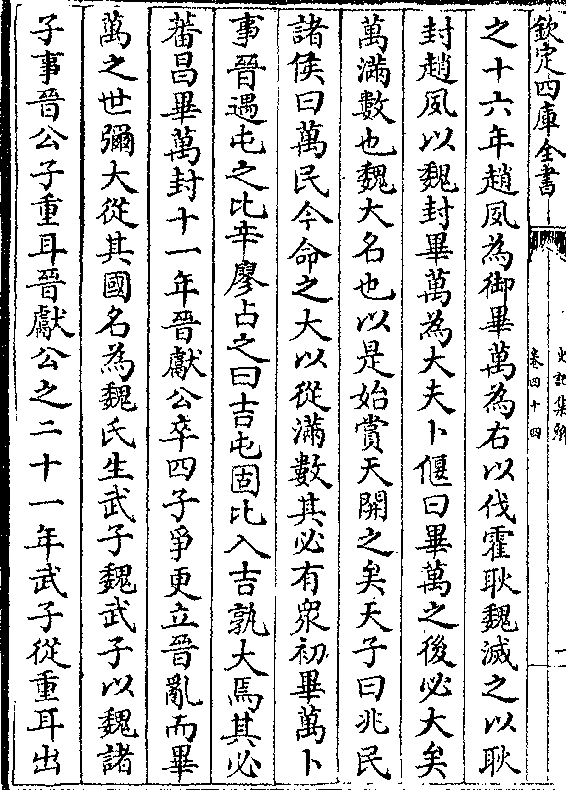 欽定四庫全書
史記集解
卷四十四
之十六年趙夙為御畢萬為右以伐霍耿魏滅之以耿
封趙夙以魏封畢萬為大夫卜偃曰畢萬之後必大矣
萬滿數也魏大名也以是始賞天開之矣天子曰兆民
諸侯曰萬民今命之大以從滿數其必有衆初畢萬卜
事晉遇屯之比辛廖占之曰吉屯固比入吉孰大焉其必
蕃昌畢萬封十一年晉獻公卒四子爭更立晉亂而畢
萬之世彌大從其國名為魏氏生武子魏武子以魏諸
子事晉公子重耳晉獻公之二十一年武子從重耳出